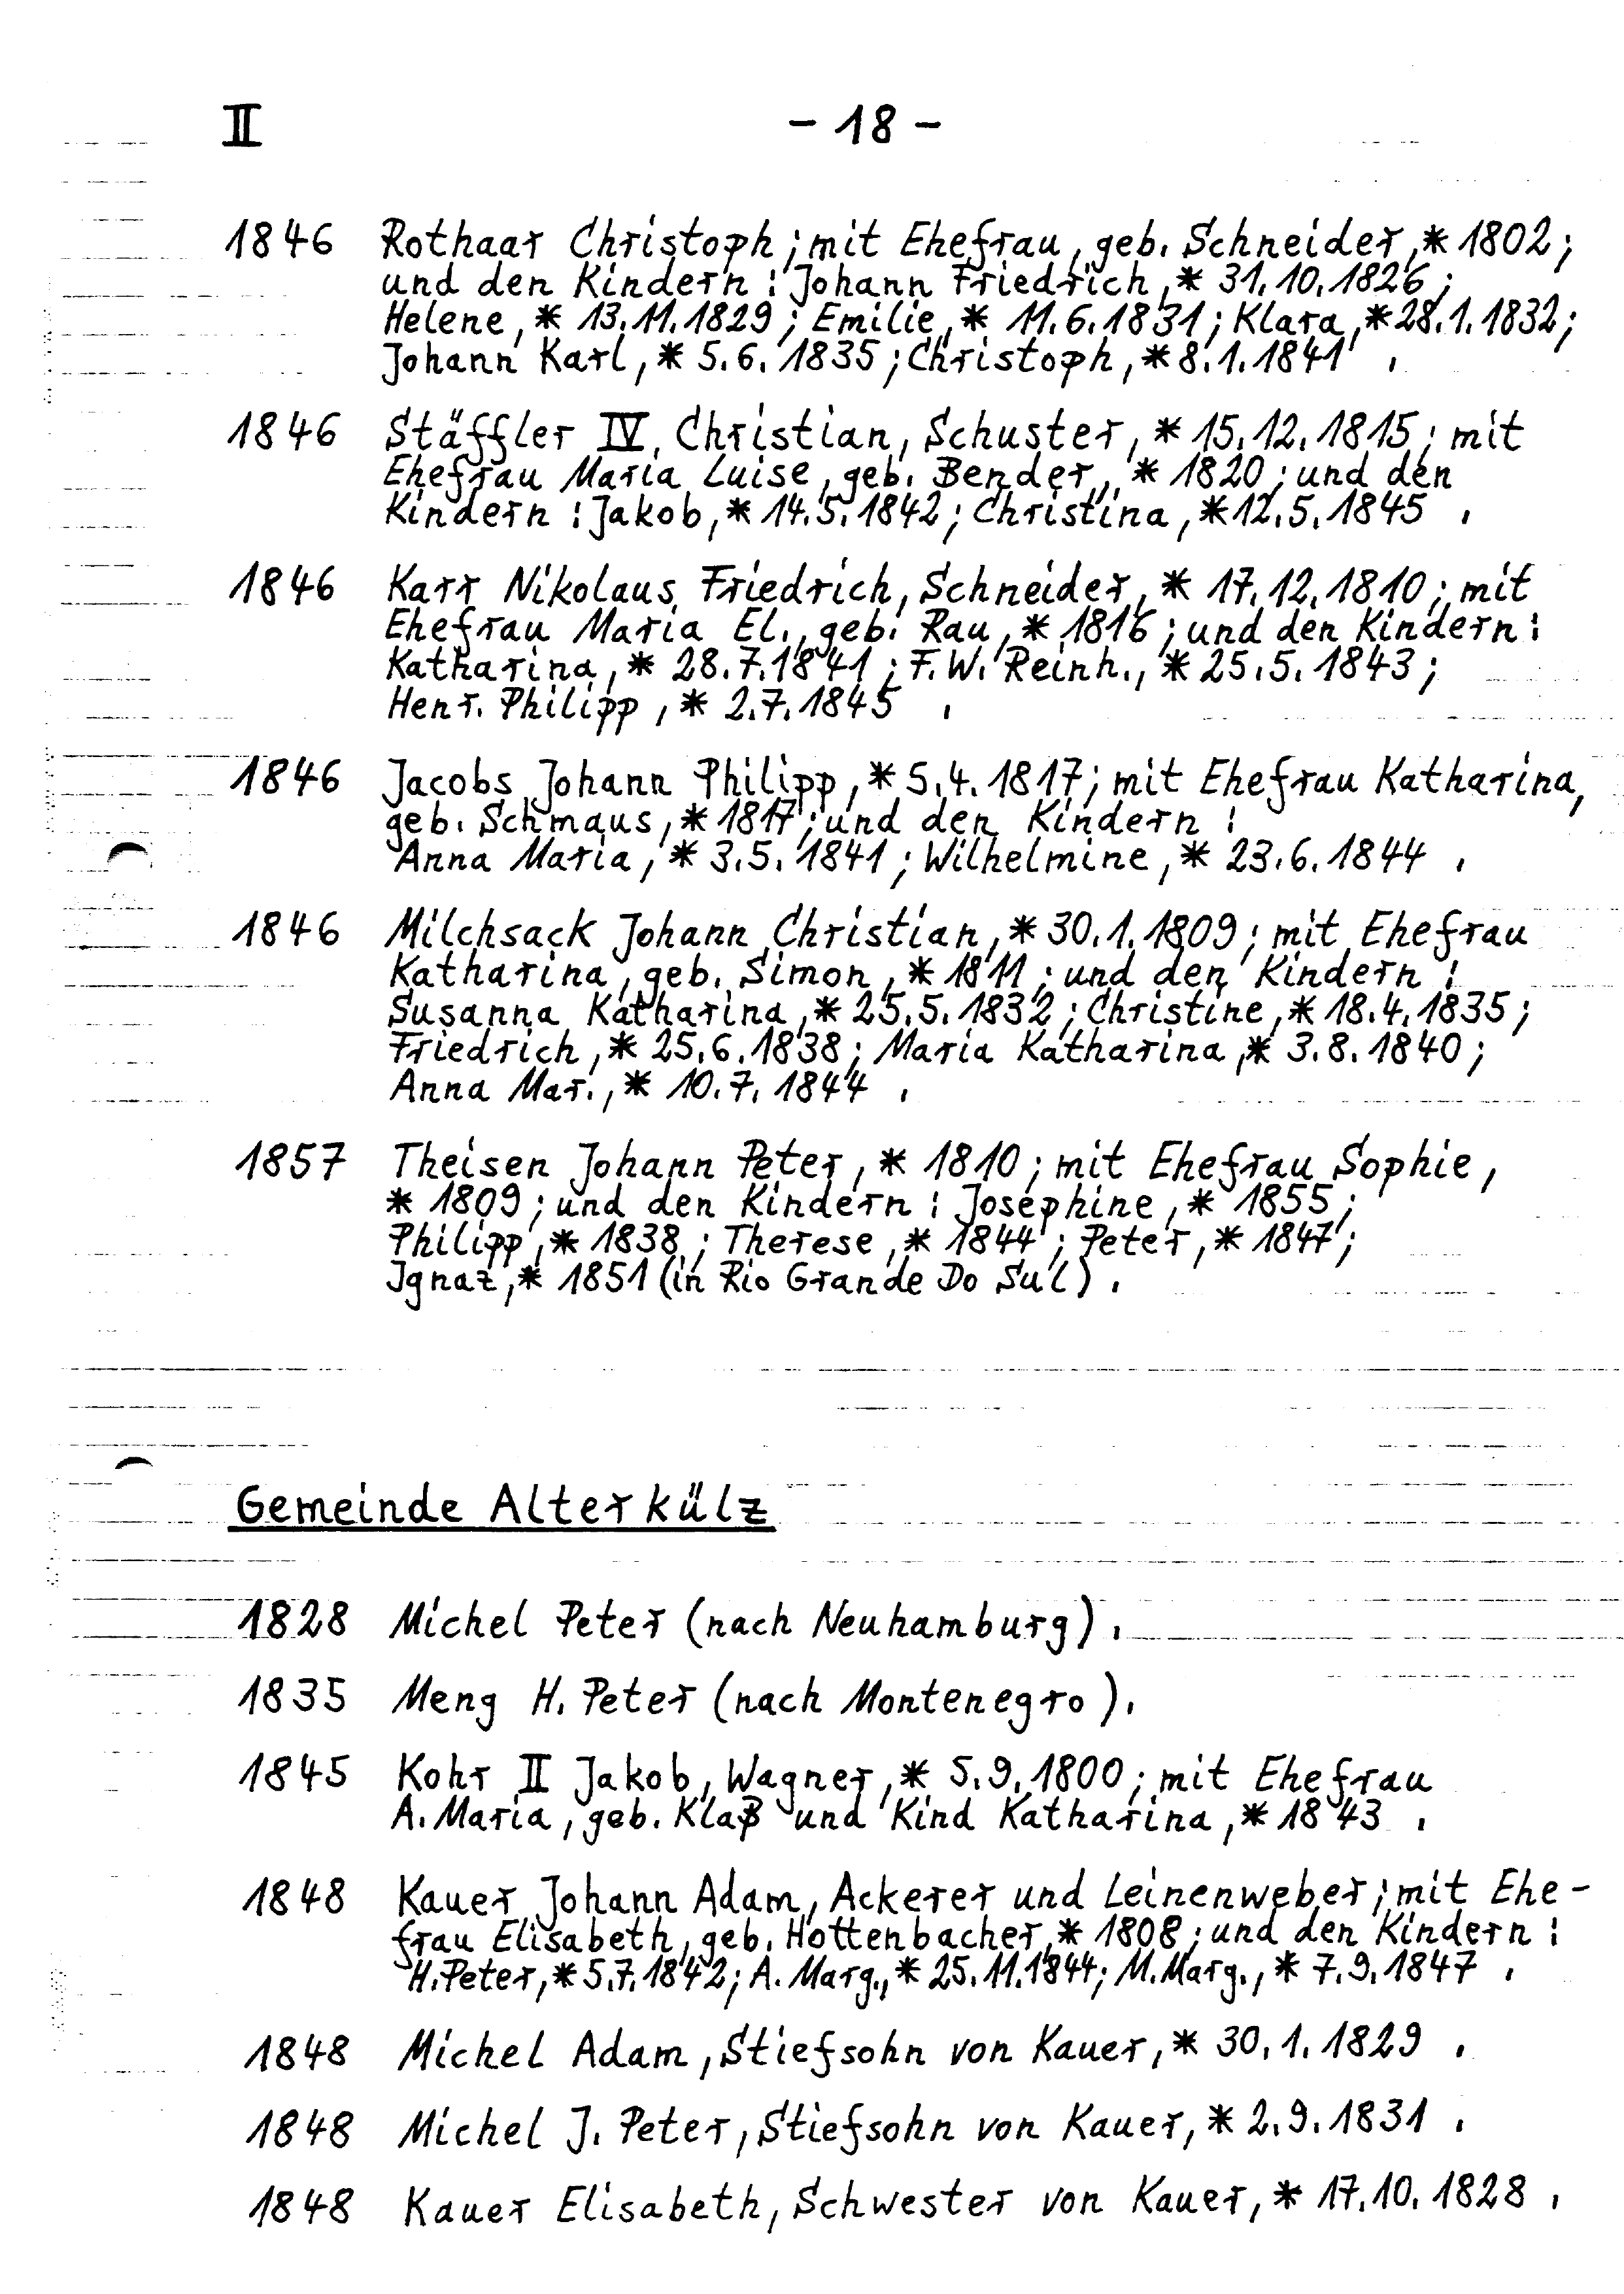 II - 18 -
1846 Rothaar Christoph; mit Ehefrau, geb. Schneider, * 1802;
und den Kindern: Johann Friedrich, * 31.10.1826;
Helene, * 13.11.1829; Emilie, * 11.6.1831; Klara, * 28.1.1832;
Johann Karl, * 5.6.1835; Christoph, * 8.1.1841 .
1846 Stäffler IV, Christian, Schuster, * 15.12.1815; mit
Ehefrau Maria Luise, geb. Bender, * 1820; und den
Kindern: Jakob, * 14.5.1842; Christina, * 12.5.1845 .
1846 Karr Nikolaus Friedrich, Schneider, * 17.12.1810; mit
Ehefrau Maria El., geb. Rau, * 1816; und den Kindern:
Katharina, * 28.7.1841; F.W. Reinh., * 25.5.1843;
Henr. Philipp, * 2.7.1845 .
1846 Jacobs Johann Philipp, * 5.4.1817; mit Ehefrau Katharina,
geb. Schmaus, * 1817; und den Kindern:
Anna Maria, * 3.5.1841; Wilhelmine, * 23.6.1844 .
1846 Milchsack Johann Christian, * 30.1.1809; mit Ehefrau
Katharina, geb. Simon, * 1811; und den Kindern:
Susanna Katharina, * 25.5.1832; Christine, * 18.4.1835;
Friedrich, * 25.6.1838; Maria Katharina, * 3.8.1840;
Anna Mar., * 10.7.1844 .
1857 Theisen Johann Peter, * 1810; mit Ehefrau Sophie,
* 1809; und den Kindern: Josephine, * 1855;
Philipp, * 1838; Therese, * 1844; Peter, * 1847;
Ignaz, * 1851 (in Rio Grande Do Sul) .
Gemeinde Alterkülz
1828 Michel Peter (nach Neuhamburg) .
1835 Meng H. Peter (nach Montenegro) .
1845 Kohr II Jakob, Wagner, * 5.9.1800; mit Ehefrau
A. Maria, geb. Klaß und Kind Katharina, * 1843 .
1848 Kauer Johann Adam, Ackerer und Leinenweber; mit Ehe-
frau Elisabeth, geb. Hottenbacher, * 1808; und den Kindern:
H. Peter, * 5.7.1842; A. Marg., * 25.11.1844; M. Marg., * 7.9.1847 .
1848 Michel Adam, Stiefsohn von Kauer, * 30.1.1829 .
1848 Michel J. Peter, Stiefsohn von Kauer, * 2.9.1831 .
1848 Kauer Elisabeth, Schwester von Kauer, * 17.10.1828 .